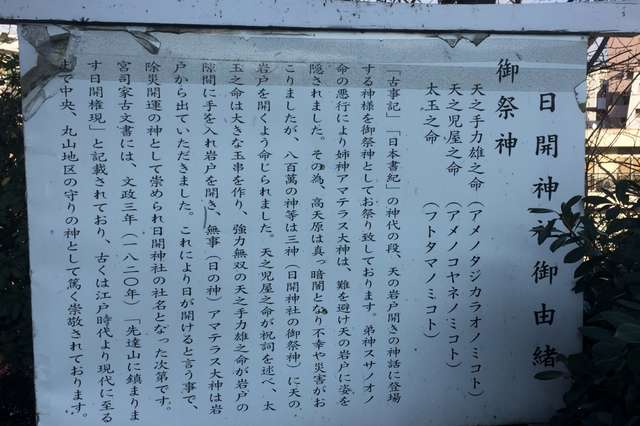 日開神社御由緒
御祭神
天之手力雄之命（アメノタジカラオノミコト）
天之児屋之命（アメノコヤネノミコト）
太玉之命（フトタマノミコト）
「古事記」「日本書紀」の神代の段、天の岩戸開きの神話に登場
する神様を御祭神としてお祭り致しております。弟神スサノオノ
命の悪行により姉神アマテラス大神は、難を避け天の岩戸に姿を
隠されました。その為、高天原は真っ暗闇となり不幸や災害がお
こりましたが、八百萬の神等は三神（日開神社の御祭神）に天の
岩戸を開くよう命じられました。天之児屋之命が祝詞を述べ、太
玉之命は大きな玉串を作り、強力無双の天之手力雄之命が岩戸の
隙間に手を入れ岩戸を開き、無事（日の神）アマテラス大神は岩
戸から出ていただきました。これにより日が開けると言う事で、
除災開運の神として崇められ日開神社の社名となった次第です。
宮司家古文書には、文政三年（一八二〇年）「先達山に鎮まりま
す日開権現」と記載されており、古くは江戸時代より現代に至る
まで中央、丸山地区の守りの神として篤く崇敬されております。